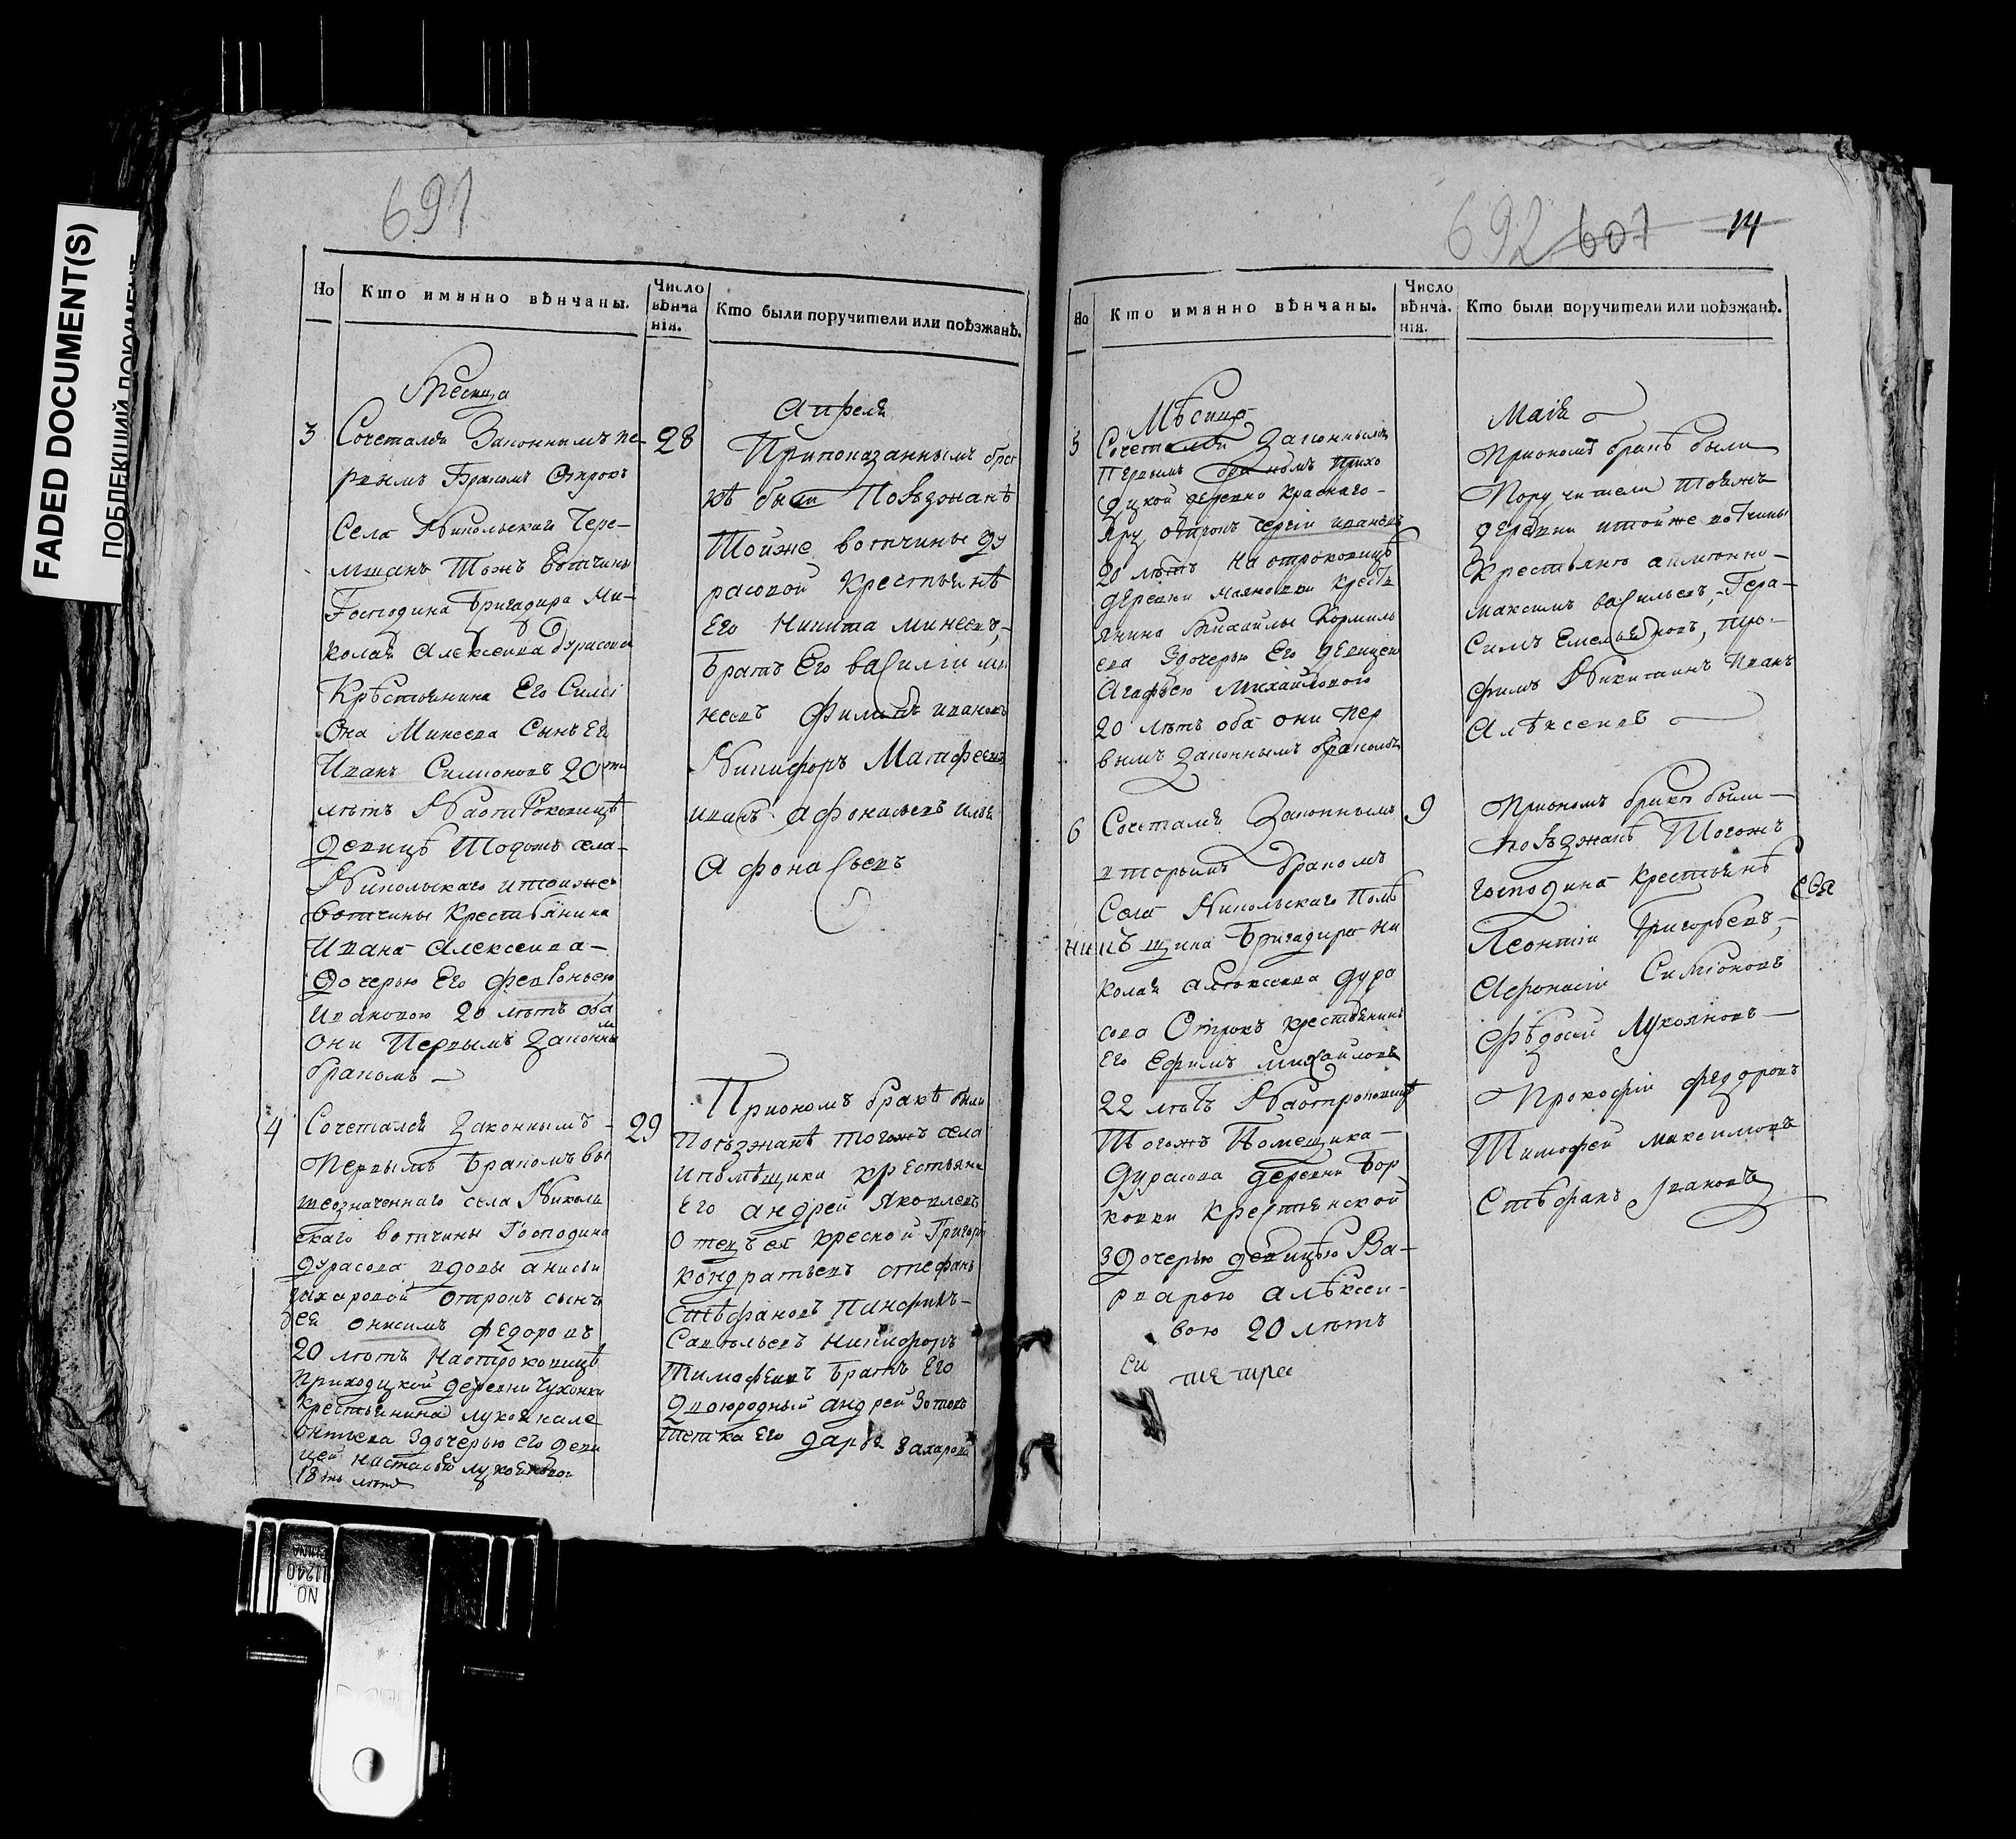 FADED DOCUMENT(S)
ПОБЛЕКШИЙ ДОКУМЕНТ
691
Но
Кто имянно вѣнчаны.
Число
вѣнча
нія.
Кто были поручители или поѣзжанѣ.
Месяца
Апреля
3
Сочетался Законнымъ пе-
рвымъ Бракомъ Отрокъ
Села Никольскаго Чере-
мшанъ Тожъ Вотчины
Господина Бригадира Ни-
колая Алексеева Дурасова
Крѣстьянина Его Сими
Она Минеева Сынъ Ег
Иванъ Симионовъ 20ти
лѣтъ Наотроковицѣ
девицѣ Тогожъ села
Никольскаго итоиже
вотчины Крестьянина
Ивана Алексеива
Дочерью Его Февроньею
Ивановою 20 лѣтъ оба
Они Первымъ Законны
бракомъ
28
При показанныхъ бра
кѣ были Поѣзжанѣ
Тойже вотчины Ду
расовой Крестьянѣ
Его Никита Минеевъ,
Братъ Его василіи ми
неевъ Филипъ ивановъ
Никифоръ Матфеевъ
иванъ Афонасьевъ илья
Афонасьевъ
4
Сочетался Законнымъ
Первымъ Бракомъ вы
шеозначеннаго села Николь
скаго вотчины Господина
Дурасова вдовы анисьи
захаровой Отрокъ сынъ
ея Онисимъ Федоровъ
20 лѣтъ Наотроковицѣ
приходцкой деревни Чухонки
Крестьянина лукояна ле
онтьева Здочерью его деви
цей настасьей лукояновой
18ть лѣтъ
29
Приономъ бракѣ были
Поѣзжанѣ тогожъ села
Ипомѣщика крестьяне
Его андрей Яковлевъ
Отецъ ея кресной Григорѣ
кондратьевъ стефанъ
Стѣфановъ Панфилъ
Савельевъ никифоръ
Тимофеевъ братъ Его
Двоюродный андрей Зотовъ
Тетка Его дарья Захарова
692 607 14
Но
Кто имянно вѣнчаны.
Число
вѣнча.
нія.
Кто были поручители или поѣзжанѣ.
Мѣсяцъ
Маія
5
Сочетался Законнымъ
Первымъ бракомъ прихо
дцкой деревни Краснаго
Яру отрокъ Сергій ивановъ
20 лѣтъ На отроковицѣ
деревни Крестѣ
янина Михайлы Кормиль
ева Здочерью Его девицей
Агафьею Михайловою
20 лѣтъ оба они пер
вымъ Законнымъ бракомъ
Приономъ бракѣ были
Поручители Тояжъ
деревни итойже вотчины
Крестьяно
максимъ васильевъ, Гера-
Симъ Емельяновъ, тро-
фимъ Никитинъ Иванъ
Алѣксеевъ
6
Сочетался Законнымъ
вторымъ бракомъ
Села Никольскаго Помѣ
щика Бригадира ни
колая алѣксеева дура
сова Отрокъ крестьянинъ
Его Ефимъ михайловъ
22 лѣтъ Наотроковицѣ
Тогожъ Помещика
Дурасова деревни Бор
ковки крестьянской
Здочерью девицою Ва-
рварою алѣксѣи-
вою 20 лѣтъ
9
Приономъ бракѣ были
поѣзжанѣ Тогожъ
господина крестьянѣ
Леонтіи Григорьевъ,
Афонасіи Симіоновъ
Фѣдосей Лукояновъ
Прокофіи федоровъ
Тимофей максимовъ
Стѣфанъ Ивановъ
свя